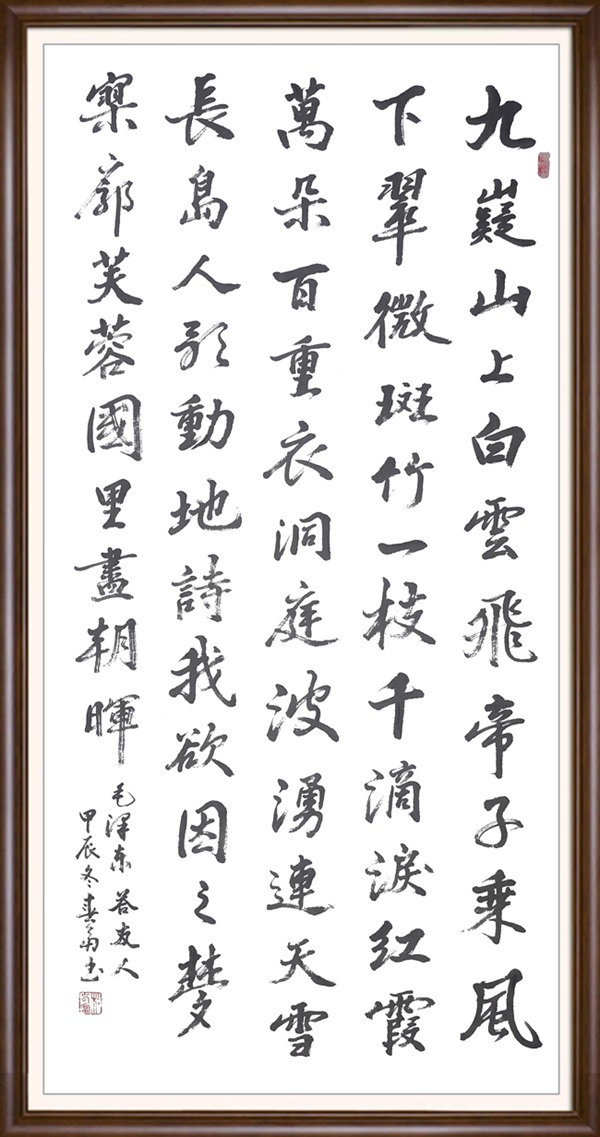 九嶷山上白雲飛帝子乘風
下翠微斑竹一枝千滴淚紅霞
萬朵百重衣洞庭波湧連天雪
長島人歌動地詩我欲因之梦
寥廓芙蓉國里盡朝暉
毛泽东答友人
甲辰冬春翁书